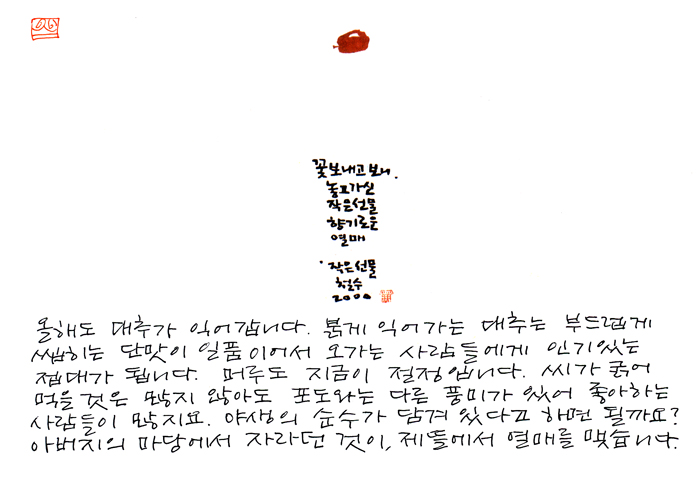 꽃보내고보니,
놓고가신
작은선물
향기로운
열매
·작은선물
철수
2000
올해도 대추가 익어갑니다. 붉게 익어가는 대추는 부드럽게
씹히는 단맛이 일품이어서 오가는 사람들에게 인기있는
접대가 됩니다. 머루도 지금이 절정입니다. 씨가 굵어
먹을 것은 많지 않아도 포도와는 다른 풍미가 있어 좋아하는
사람들이 많지요. 야생의 순수가 담겨 있다고 하면 될까요?
아버지의 마당에서 자라던 것이, 제뜰에서 열매를 맺습니다.